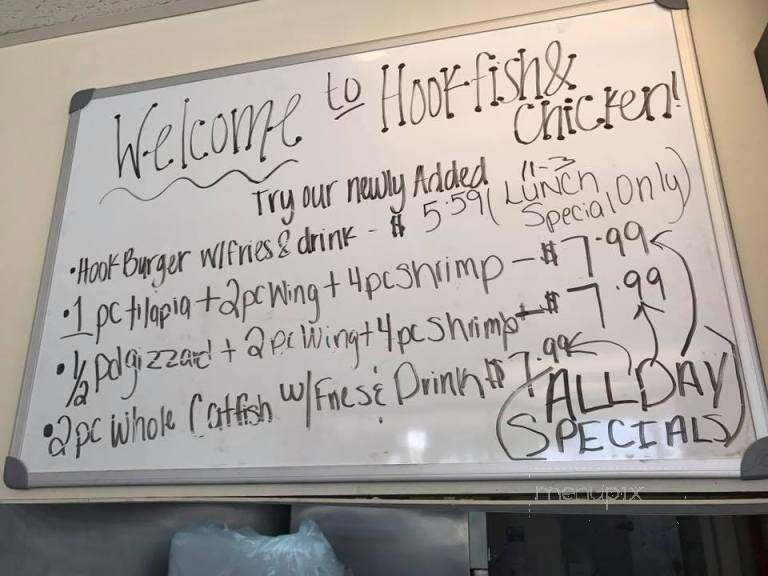 Welcome to Hook fish & Chicken!
Try our newly Added
•Hook Burger w/fries & drink - $ 5.59 ( 11-3 LUNCH Special Only)
•1 pc tilapia + 2pc Wing + 4pc shrimp - $7.99
•1/2 pd gizzard + 2pc Wing + 4pc shrimp - $7.99
•2pc Whole Catfish w/Fries & Drink $7.99
(ALL DAY SPECIALS)
menupix